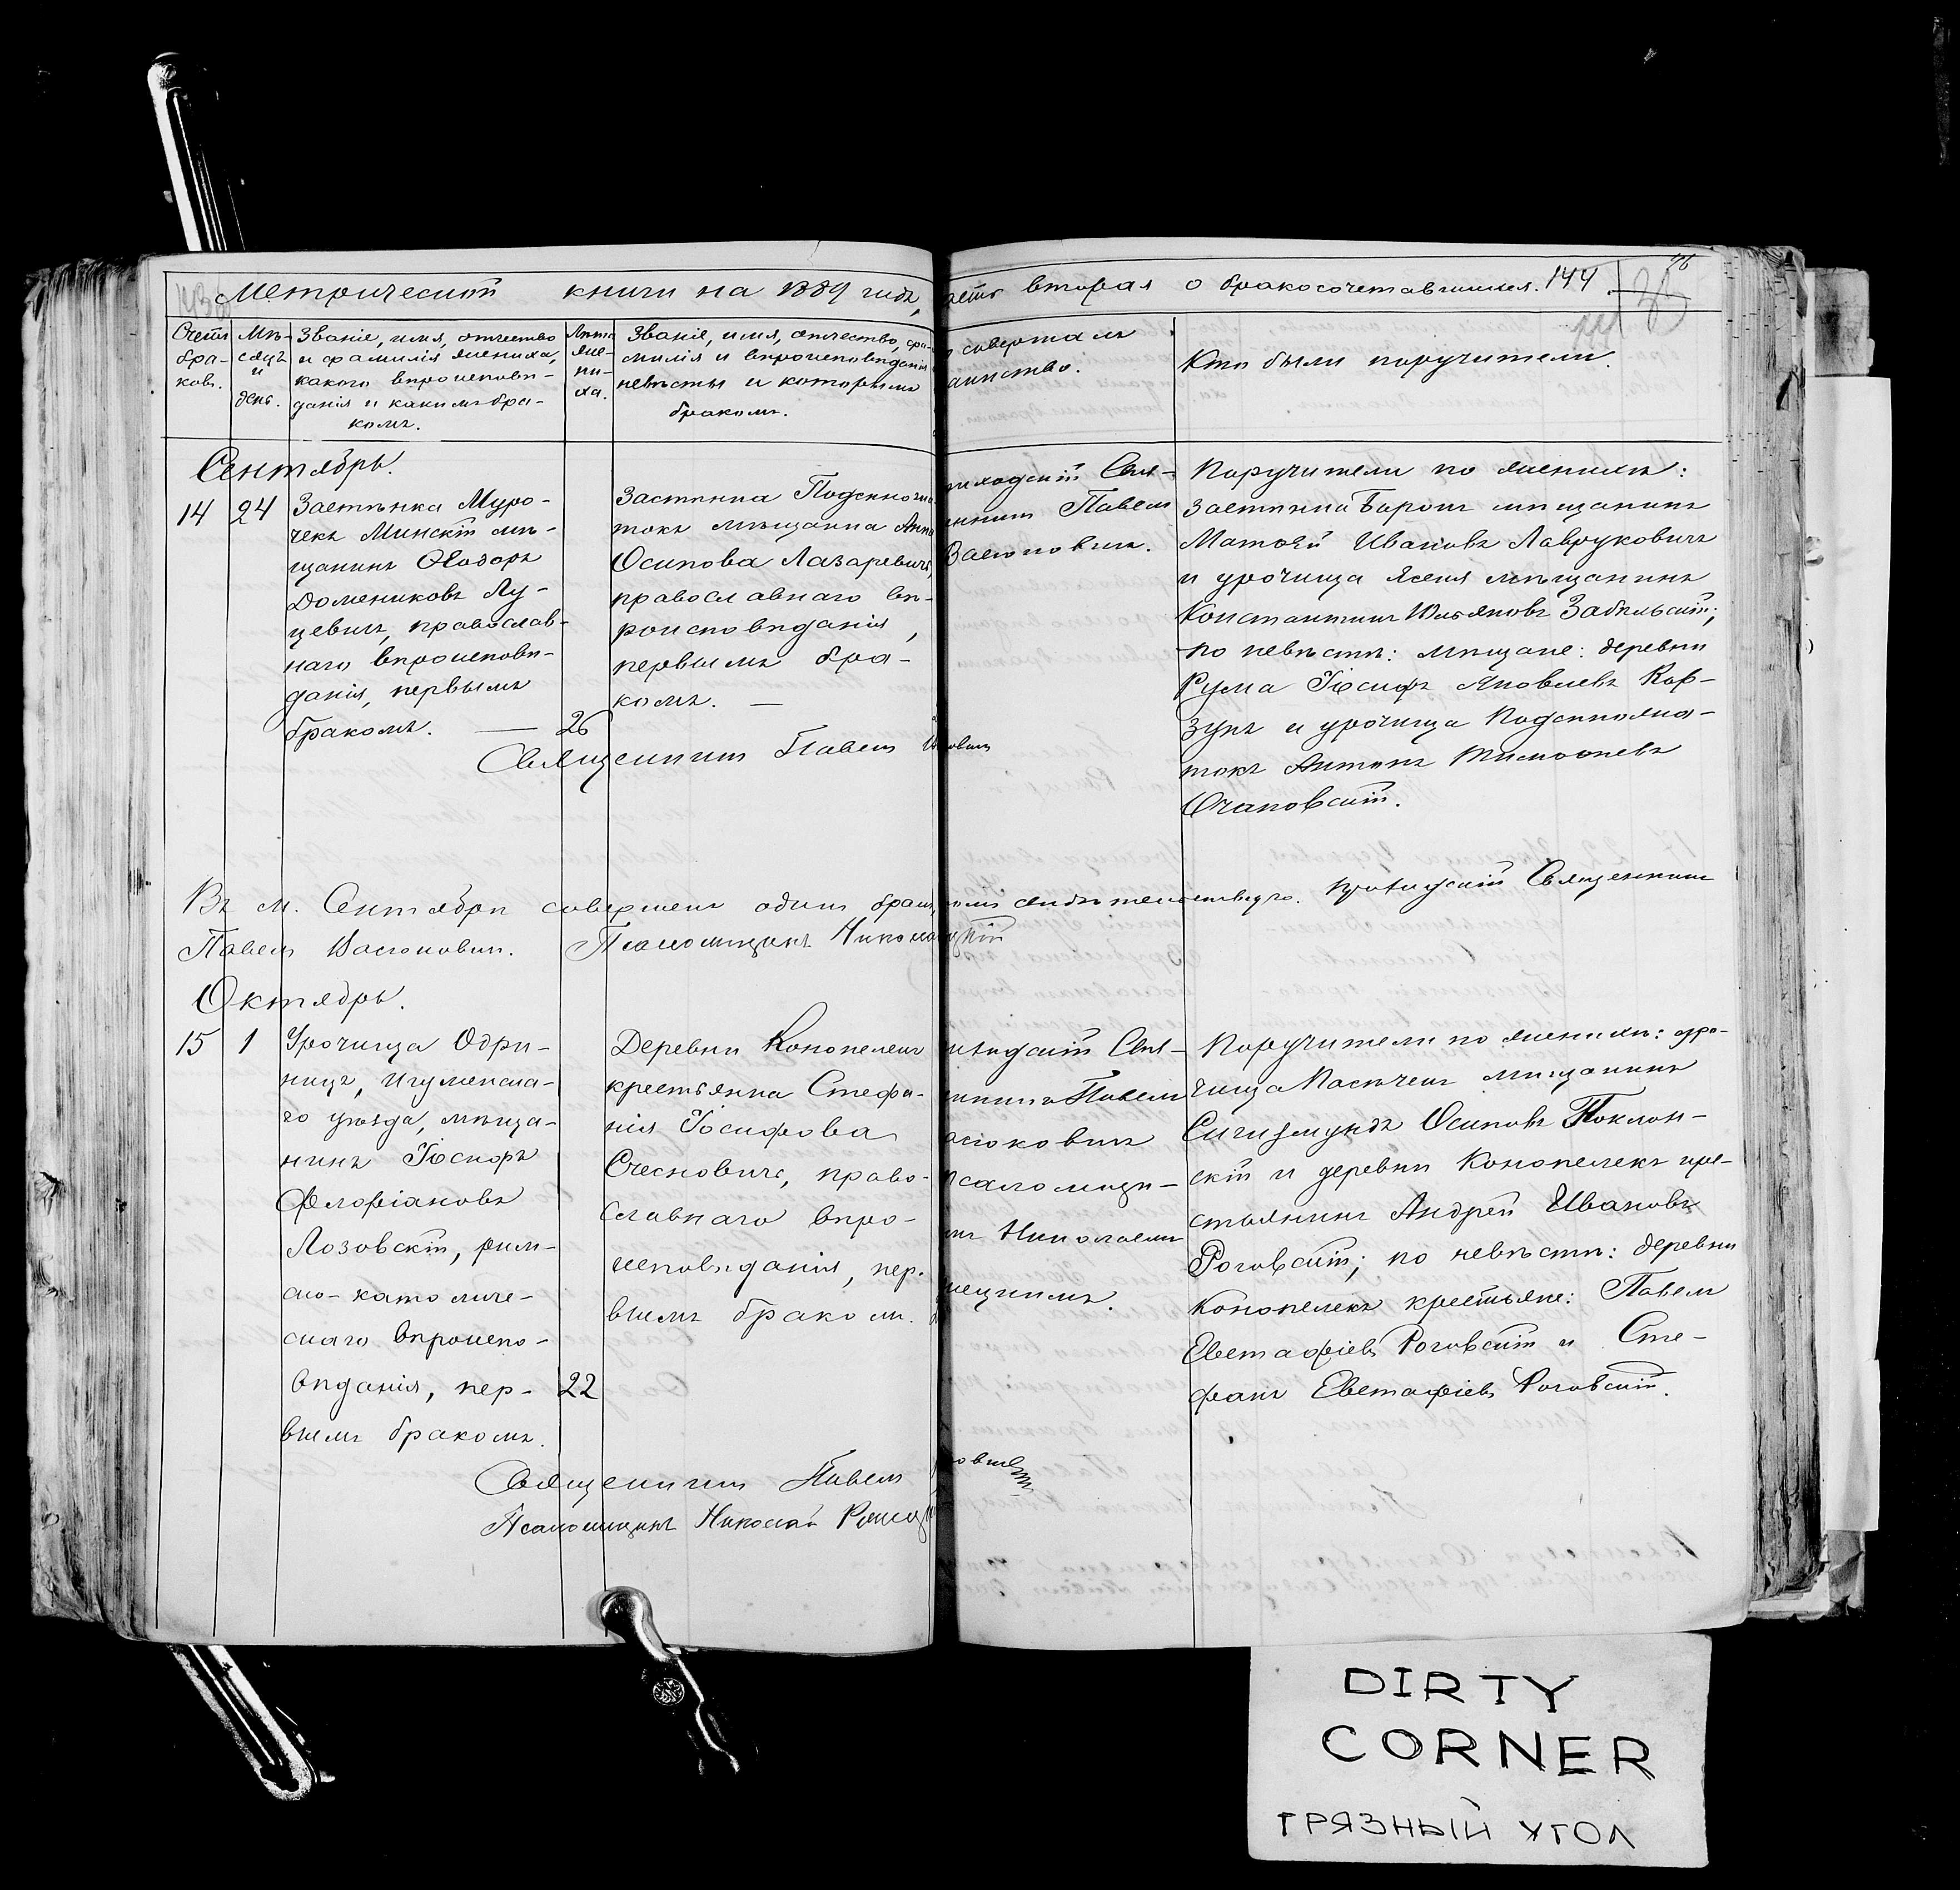 Метрической книги на 1889 годъ,
асть вторая о бракосочетавшихся. 144
Счетъ
бра-
ковъ.
Мѣ-
сяцъ
и
день.
Званіе, имя, отчество
и фамилія жениха,
какого вѣроисповѣ-
данія и какимъ бра-
комъ.
Лѣта
же-
ни-
ха.
Званіе, имя, отчество, фа-
милія и вѣроисповѣданіе
невѣсты и которымъ
бракомъ.
совершалъ
аинство.
Кто были поручители.
Сентябрь.
14 24
Застѣнка Муро-
чекъ Минскій мѣ-
щанинъ Ѳеодоръ
Домениковъ Лу-
цевичъ, православ-
наго вѣроисповѣ-
данія, первымъ
бракомъ. — 26
Застѣнка
токъ мѣщанка Анна
Осипова Лазаревичъ,
православнаго вѣ-
роисповѣданія,
первымъ бра-
комъ. —
риходскій Свя-
енникъ Павелъ
Васюковичъ.
Поручители по женихѣ:
застѣнка Борокъ мѣщанинъ
Матѳей Ивановъ Лаврукович
и урочища Ясеня мѣщанинъ
Константинъ Юльяновъ Забѣльскій;
по невѣстѣ: мѣщане: деревни
Рума Іосифъ Яковлевъ Кор-
зунъ и урочища
токъ Антонъ Тимоѳеевъ
Очаповскій.
Священникъ Павелъ
Въ м. Сентябрѣ совершенъ одинъ бракъ, Приходскій Священникъ
Павелъ Васюковичъ. Псаломщикъ
Октябрь.
15 1
Урочища Одри-
ницъ, Игуменска-
го уѣзда, мѣща-
нинъ Іосифъ
Флоріановъ
Лозовскій, рим-
ско-католиче-
скаго вѣроиспо-
вѣданія, пер- 22
вымъ бракомъ.
Деревни Конопелекъ
крестьянка Стефа-
нія Іосифова
Счесновичъ, право-
славнаго вѣро-
исповѣданія, пер-
вымъ бракомъ.
иходскій Свя-
щенникъ Павелъ
асюковичъ
псаломщи-
мъ Николаемъ
Поручители по женихѣ: уро-
чища Пасѣчекъ мѣщанинъ
Сигизмундъ Осиповъ Поклон-
скій и деревни Конопелекъ кре-
стьянинъ Андрей Ивановъ
Роговскій; по невѣстѣ: деревни
Конопелекъ крестьяне: Павелъ
Евстафіевъ Роговскій и Сте-
фанъ Евстафіевъ Роговскій.
Священникъ Павелъ
Псаломщикъ Николай
DIRTY
CORNER
ГРЯЗНЫЙ УГОЛ